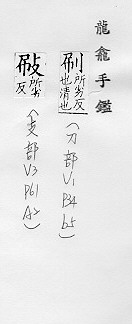 龍龕手鑑
𠛬所劣反
也清也
(刀部V1
P34
b5)
㕞所劣
反
(支部V3
P61
A2)